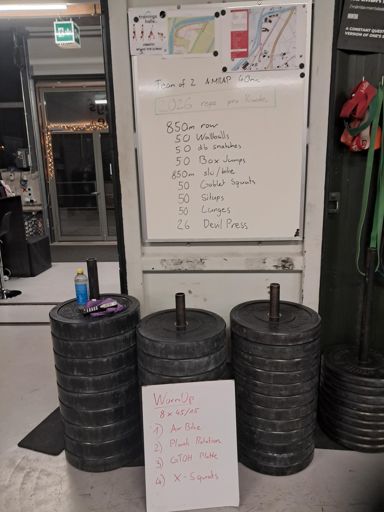 Team of 2 AMRAP 40min
2026 reps pro Runde
850m row
50 Wallballs
50 db snatches
50 Box Jumps
850m ski/bike
50 Goblet Squats
50 Situps
50 Lunges
26 Devil Press
WarmUp
8 x 45/15
1) Air Bike
2) Plank Rotation
3) GTOH Plate
4) X-Squats
A CONSTANT QUEST
VERSION OF ONE'S